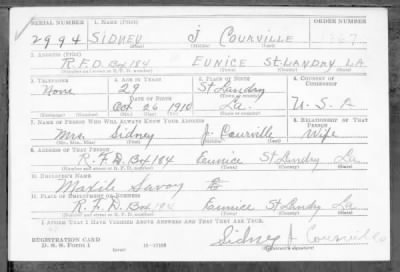 SERIAL NUMBER 1. NAME (Print) ORDER NUMBER
2994 SIDNEY J COURVILLE 1367
(First) (Middle) (Last)
2. ADDRESS (Print)
R.F.D. Box 184 EUNICE ST. LANDRY LA
(Number and street or R. F. D. number) (Town) (County) (State)
3. TELEPHONE 4. AGE IN YEARS 5. PLACE OF BIRTH 6. COUNTRY OF CITIZENSHIP
None 29 St Landry
DATE OF BIRTH (Town or county)
Oct. 26 1910 La. U.S.A
(Mo.) (Day) (Yr.) (State or country)
7. NAME OF PERSON WHO WILL ALWAYS KNOW YOUR ADDRESS 8. RELATIONSHIP OF THAT PERSON
Mrs. Sidney J. Courville Wife
(Mr., Mrs., Miss) (First) (Middle) (Last)
9. ADDRESS OF THAT PERSON
R.F.D. Box 184 Eunice St Landry La
(Number and street or R. F. D. number) (Town) (County) (State)
10. EMPLOYER'S NAME
Maxile Savoy
11. PLACE OF EMPLOYMENT OR BUSINESS
R.F.D. Box 184 Eunice St Landry La
(Number and street or R. F. D. number) (Town) (County) (State)
I AFFIRM THAT I HAVE VERIFIED ABOVE ANSWERS AND THAT THEY ARE TRUE.
REGISTRATION CARD
D. S. S. Form 1 Sidney J Courville
(over) (Registrant's signature)